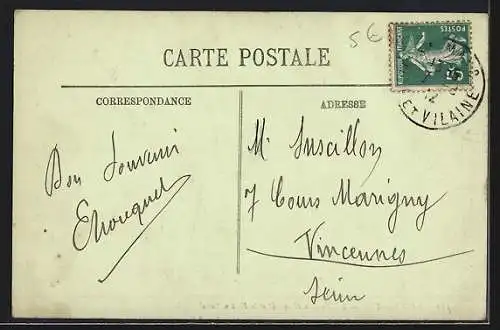 5€
CARTE POSTALE
POSTES
REPUBLIQUE FRANÇAISE
5
12
ET VILAINE
CORRESPONDANCE
ADRESSE
Bon Souvenir
M. Suscillon
7 Cours Marigny
Vincennes
Seine